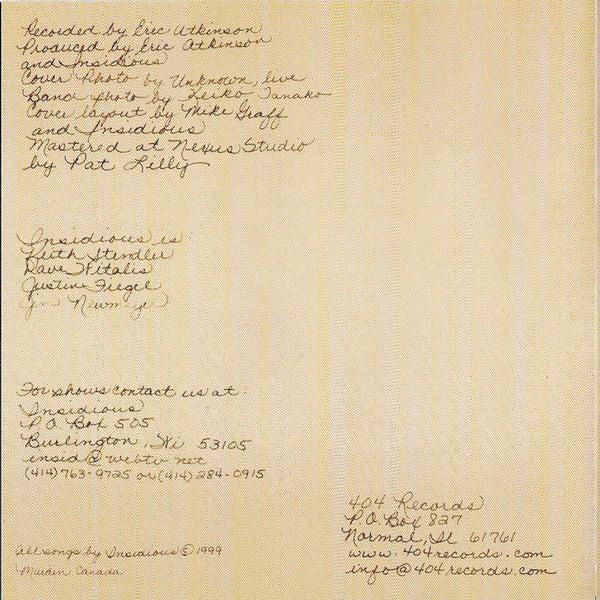 Recorded by Eric Atkinson
Produced by Eric Atkinson
and Insidious
Cover Photo by Unknown, live
Band photo by Keiko Tanaka
Cover layout by Mike Graff
and Insidious
Mastered at Nexus Studio
by Pat Lilly
Insidious is:
Keith Stendler
Dave Vitalis
Justin Fiegel
Jim Newmeyer
For shows contact us at:
Insidious
P.O. Box 505
Burlington, Wi 53105
insid@webtv.net
(414)763-9725 or (414)284-0915
All songs by Insidious © 1999
Maiden Canada
404 Records
P.O. Box 827
Normal, IL 61761
www.404records.com
info@404records.com